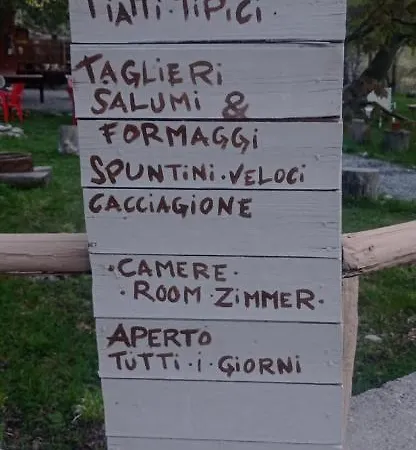 PIATTI·TIPICI·
TAGLIERI
SALUMI &
FORMAGGI
SPUNTINI·VELOCI
CACCIAGIONE
·CAMERE·
·ROOM·ZIMMER·
APERTO
TUTTI·I·GIORNI